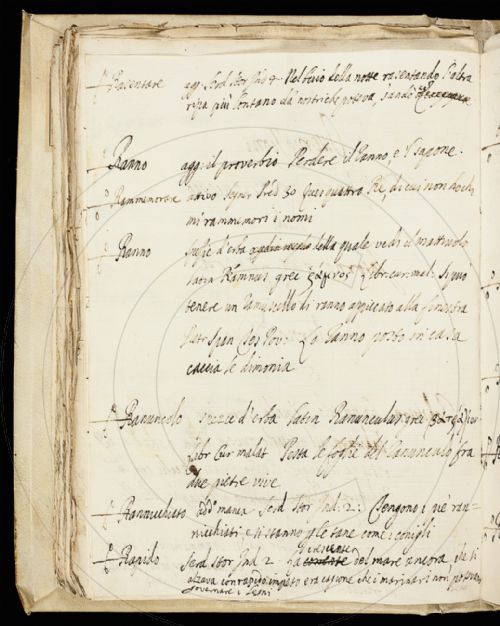 Rasentare agg. Serd. Stor. Ind. 4 Nel buio della notte rasentando l'altra
ripa più lontano da' nostri che poteva, s'andò
Ranno agg: il proverbio Perdere il ranno, e 'l sapone.
Rammemorare attivo Segner. Pred. 30 Quei quattro Re, di cui non occhi,
mi rammemori i nomi
Ranno spezie d'erba della quale vedi il mattiuolo
latin Ramnus grec ῥάμνος Libr: cur: mal: Si può
tenere un ramuscello di ranno appiccato alla finestra
Lo Ranno posto in casa
caccia le dimonia
Ranuncolo spezze d'erba latin Ranunculus grec
Libr Cur malat Pesta le foglie del ranuncolo fra
due pietre vive
Rannicchiato add: da manca. Serd Stor Ind: 2: Vengono i piè ran-
nicchiati e si stanno p le tane come i conigli
Rapido Serd Stor Ind 2 La crescenza del mare ancora, che si
alzava con rapido impeto era cagione che i marinari non potevano
governare i legni